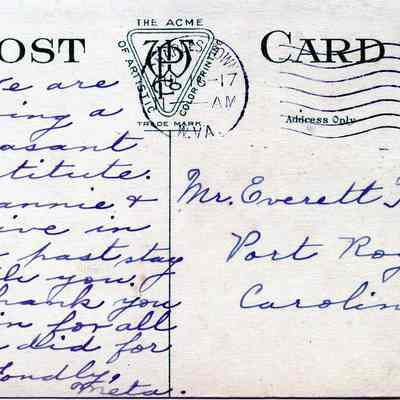 POST CARD
THE ACME
OF ARTISTIC
COLOR PRINTING
TRADE MARK
-17
AM
W.VA.
Address Only
we are
ing a
easant
stitute.
annie &
live in
past stay
you.
thank you
in for all
did for
Fondly,
Meta.
Mr. Everett
Port Roy
Carolin